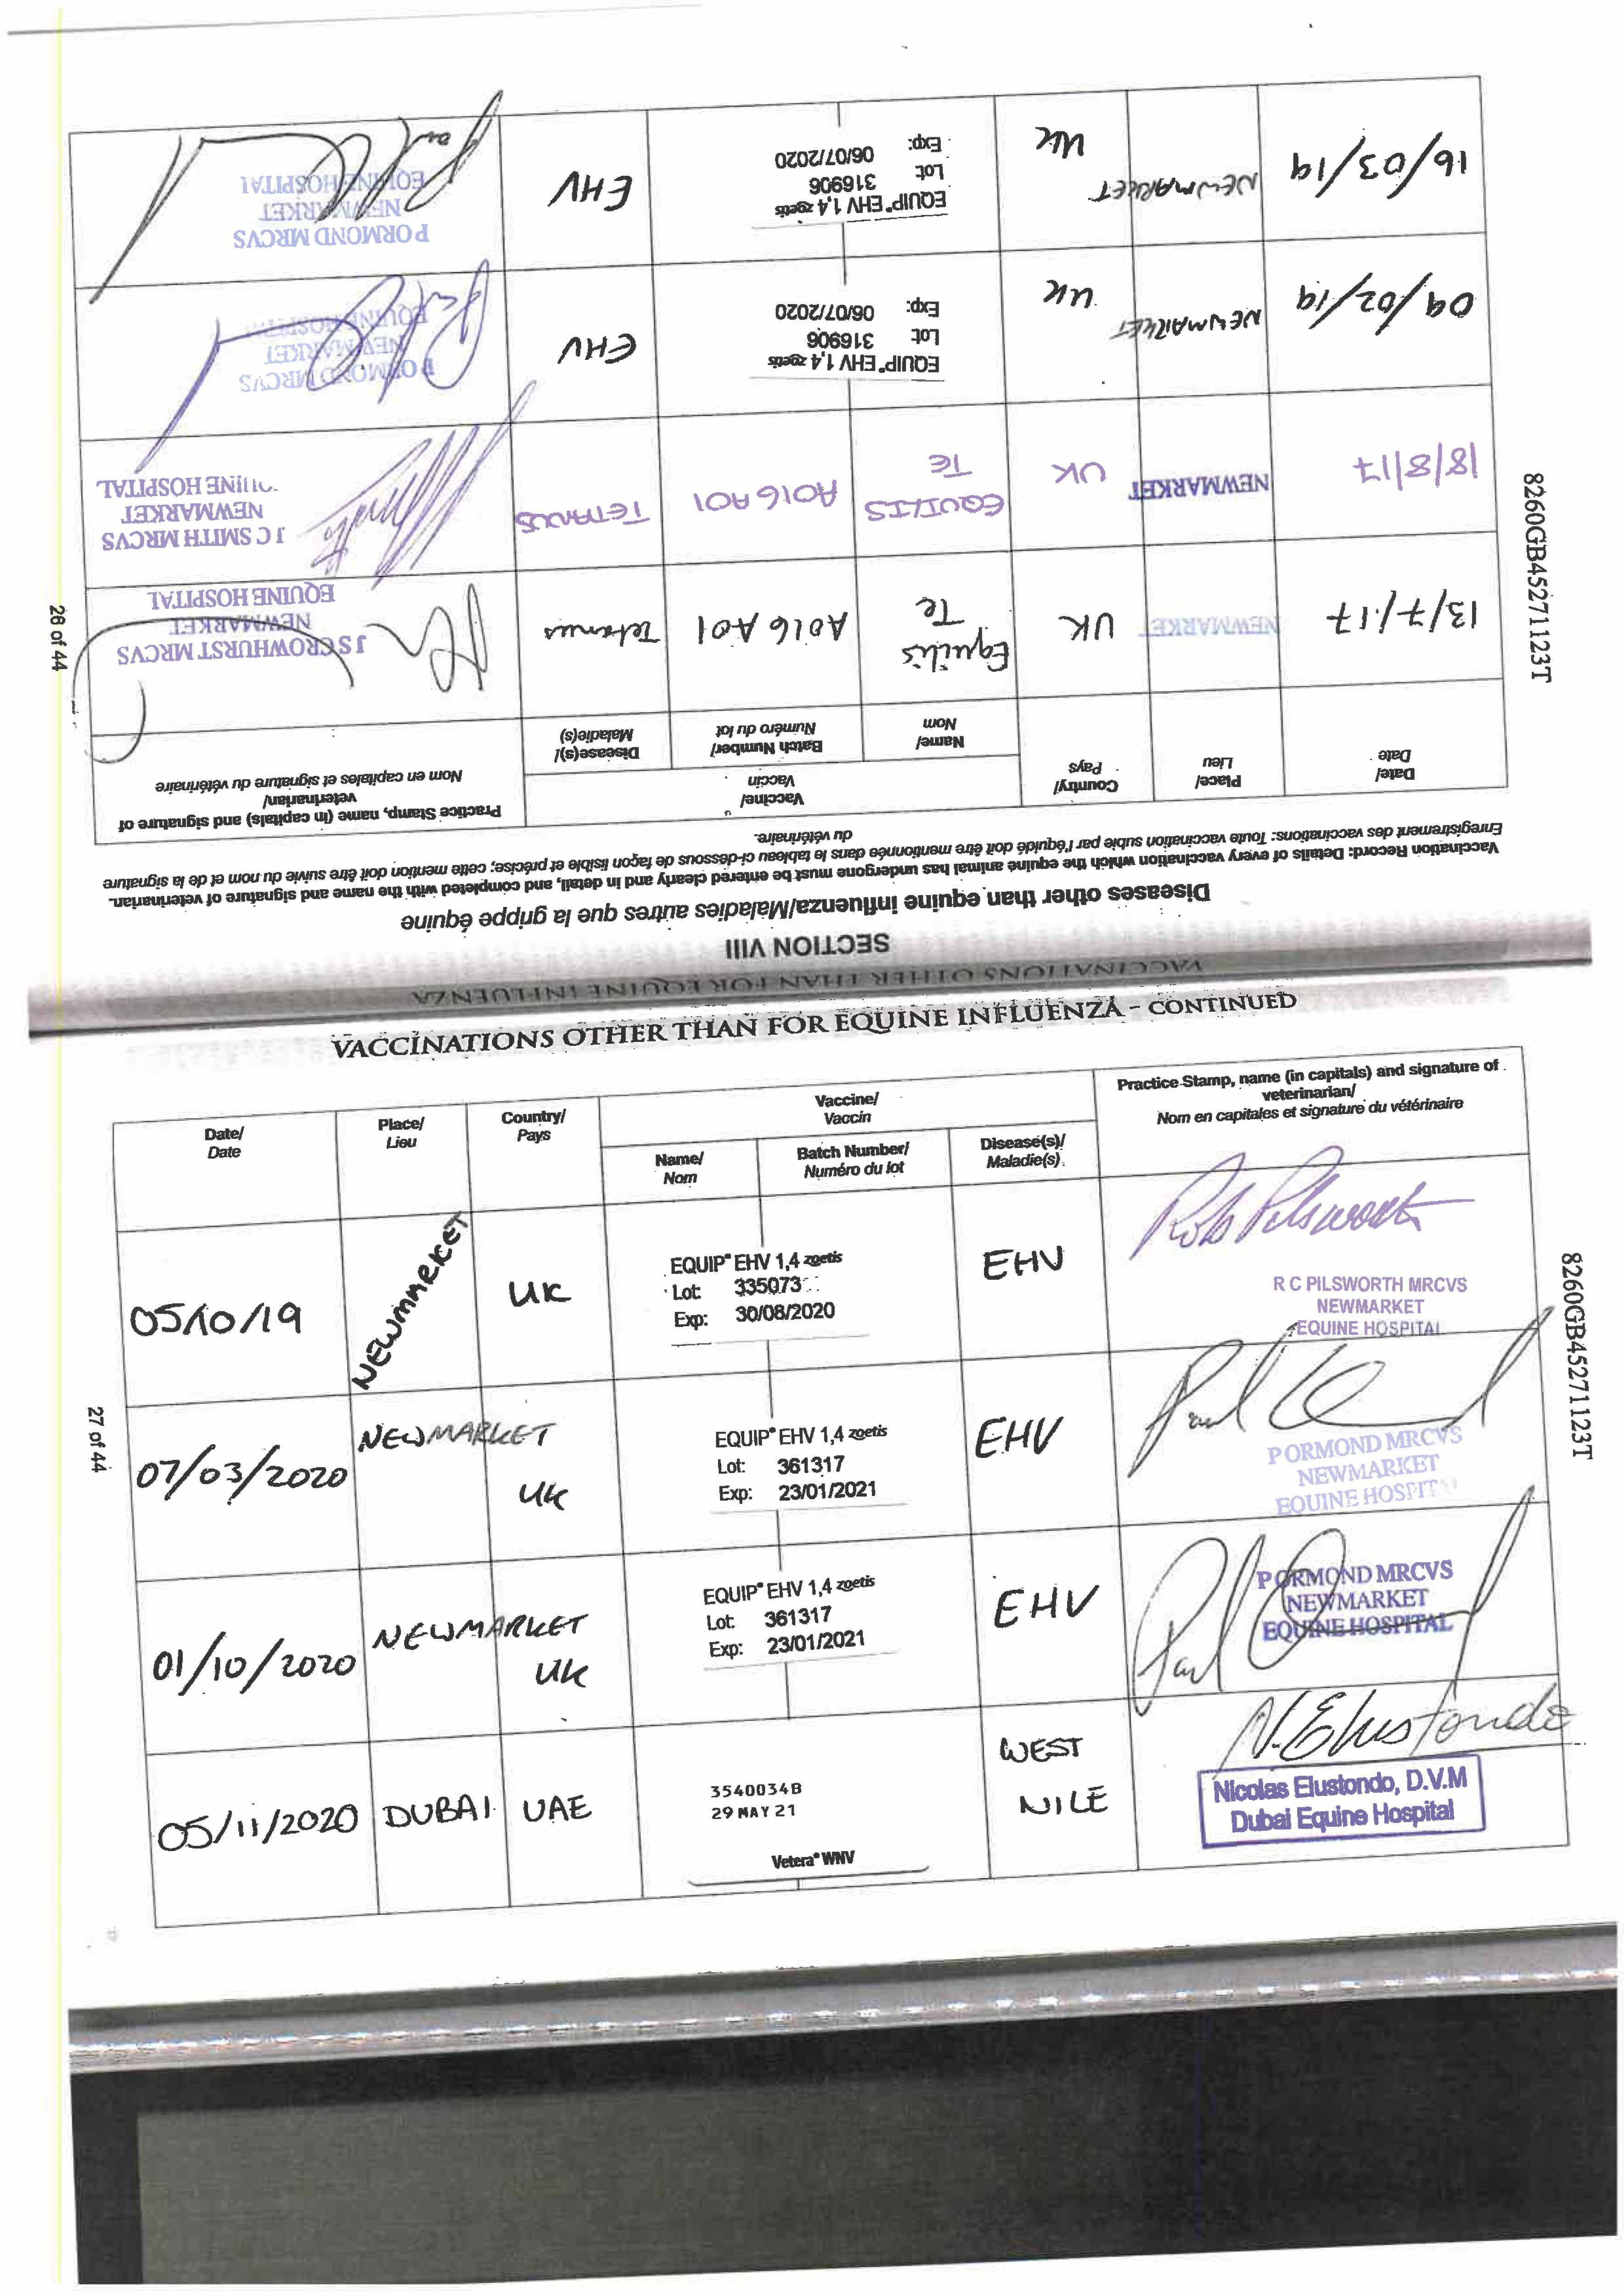 SECTION VIII
Diseases other than equine influenza/Maladies autres que la grippe équine
Vaccination Record: Details of every vaccination which the equine animal has undergone must be entered clearly and in detail, and completed with the name and signature of veterinarian.
Enregistrement des vaccinations: Toute vaccination subie par l'équidé doit être mentionnée dans le tableau ci-dessous de façon lisible et précise; cette mention doit être suivie du nom et de la signature
du vétérinaire.
Date/
Date
Place/
Lieu
Country/
Pays
Vaccine/
Vaccin
Name/
Nom
Batch Number/
Numéro du lot
Disease(s)/
Maladie(s)
Practice Stamp, name (in capitals) and signature of
veterinarian/
Nom en capitales et signature du vétérinaire
13/7/17
NEWMARKET
UK
Equilis
Te
A016 A01
Tetanus
J S CROWHURST MRCVS
NEWMARKET
EQUINE HOSPITAL
18/8/17
NEWMARKET
UK
EQUILIS
TE
A016 A01
TETANUS
J C SMITH MRCVS
NEWMARKET
HOSPITAL
09/02/19
NEWMARKET
UK
EQUIP® EHV 1,4 zoetis
Lot: 316906
Exp: 06/07/2020
EHV
P ORMOND MRCVS
NEWMARKET
EQUINE HOSPITAL
16/03/19
NEWMARKET
UK
EQUIP® EHV 1,4 zoetis
Lot: 316906
Exp: 06/07/2020
EHV
P ORMOND MRCVS
NEWMARKET
EQUINE HOSPITAL
8260GB45271123T
26 of 44
VACCINATIONS OTHER THAN FOR EQUINE INFLUENZA
VACCINATIONS OTHER THAN FOR EQUINE INFLUENZA - CONTINUED
Date/
Date
Place/
Lieu
Country/
Pays
Vaccine/
Vaccin
Name/
Nom
Batch Number/
Numéro du lot
Disease(s)/
Maladie(s)
Practice Stamp, name (in capitals) and signature of
veterinarian/
Nom en capitales et signature du vétérinaire
05/10/19
NEWMARKET
UK
EQUIP® EHV 1,4 zoetis
Lot: 335073
Exp: 30/08/2020
EHV
Rob Pilsworth
R C PILSWORTH MRCVS
NEWMARKET
EQUINE HOSPITAL
07/03/2020
NEWMARKET
UK
EQUIP® EHV 1,4 zoetis
Lot: 361317
Exp: 23/01/2021
EHV
Paul
P ORMOND MRCVS
NEWMARKET
EQUINE HOSPIT
01/10/2020
NEWMARKET
UK
EQUIP® EHV 1,4 zoetis
Lot: 361317
Exp: 23/01/2021
EHV
Paul
P ORMOND MRCVS
NEWMARKET
EQUINE HOSPITAL
05/11/2020
DUBAI
UAE
3540034B
29 MAY 21
Vetera® WNV
WEST
NILE
N. Elustondo
Nicolas Elustondo, D.V.M
Dubai Equine Hospital
8260GB45271123T
27 of 44